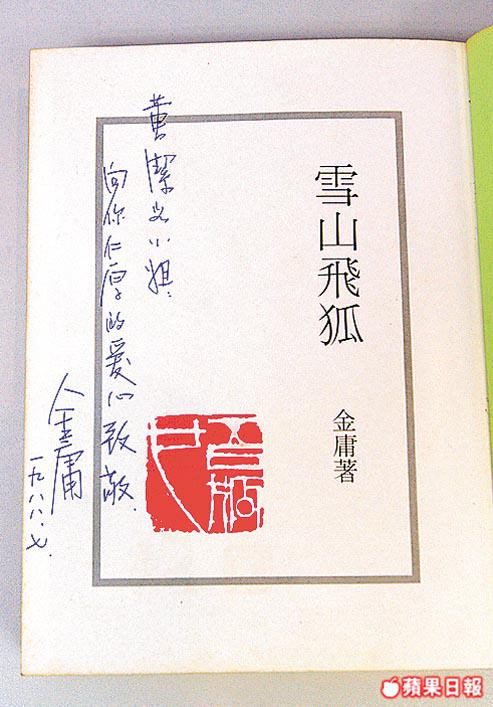 雪山飛狐
金庸著
黃潔 小姐:
向你仁厚的愛心致敬.
金庸
一九八八.七.
蘋果日報